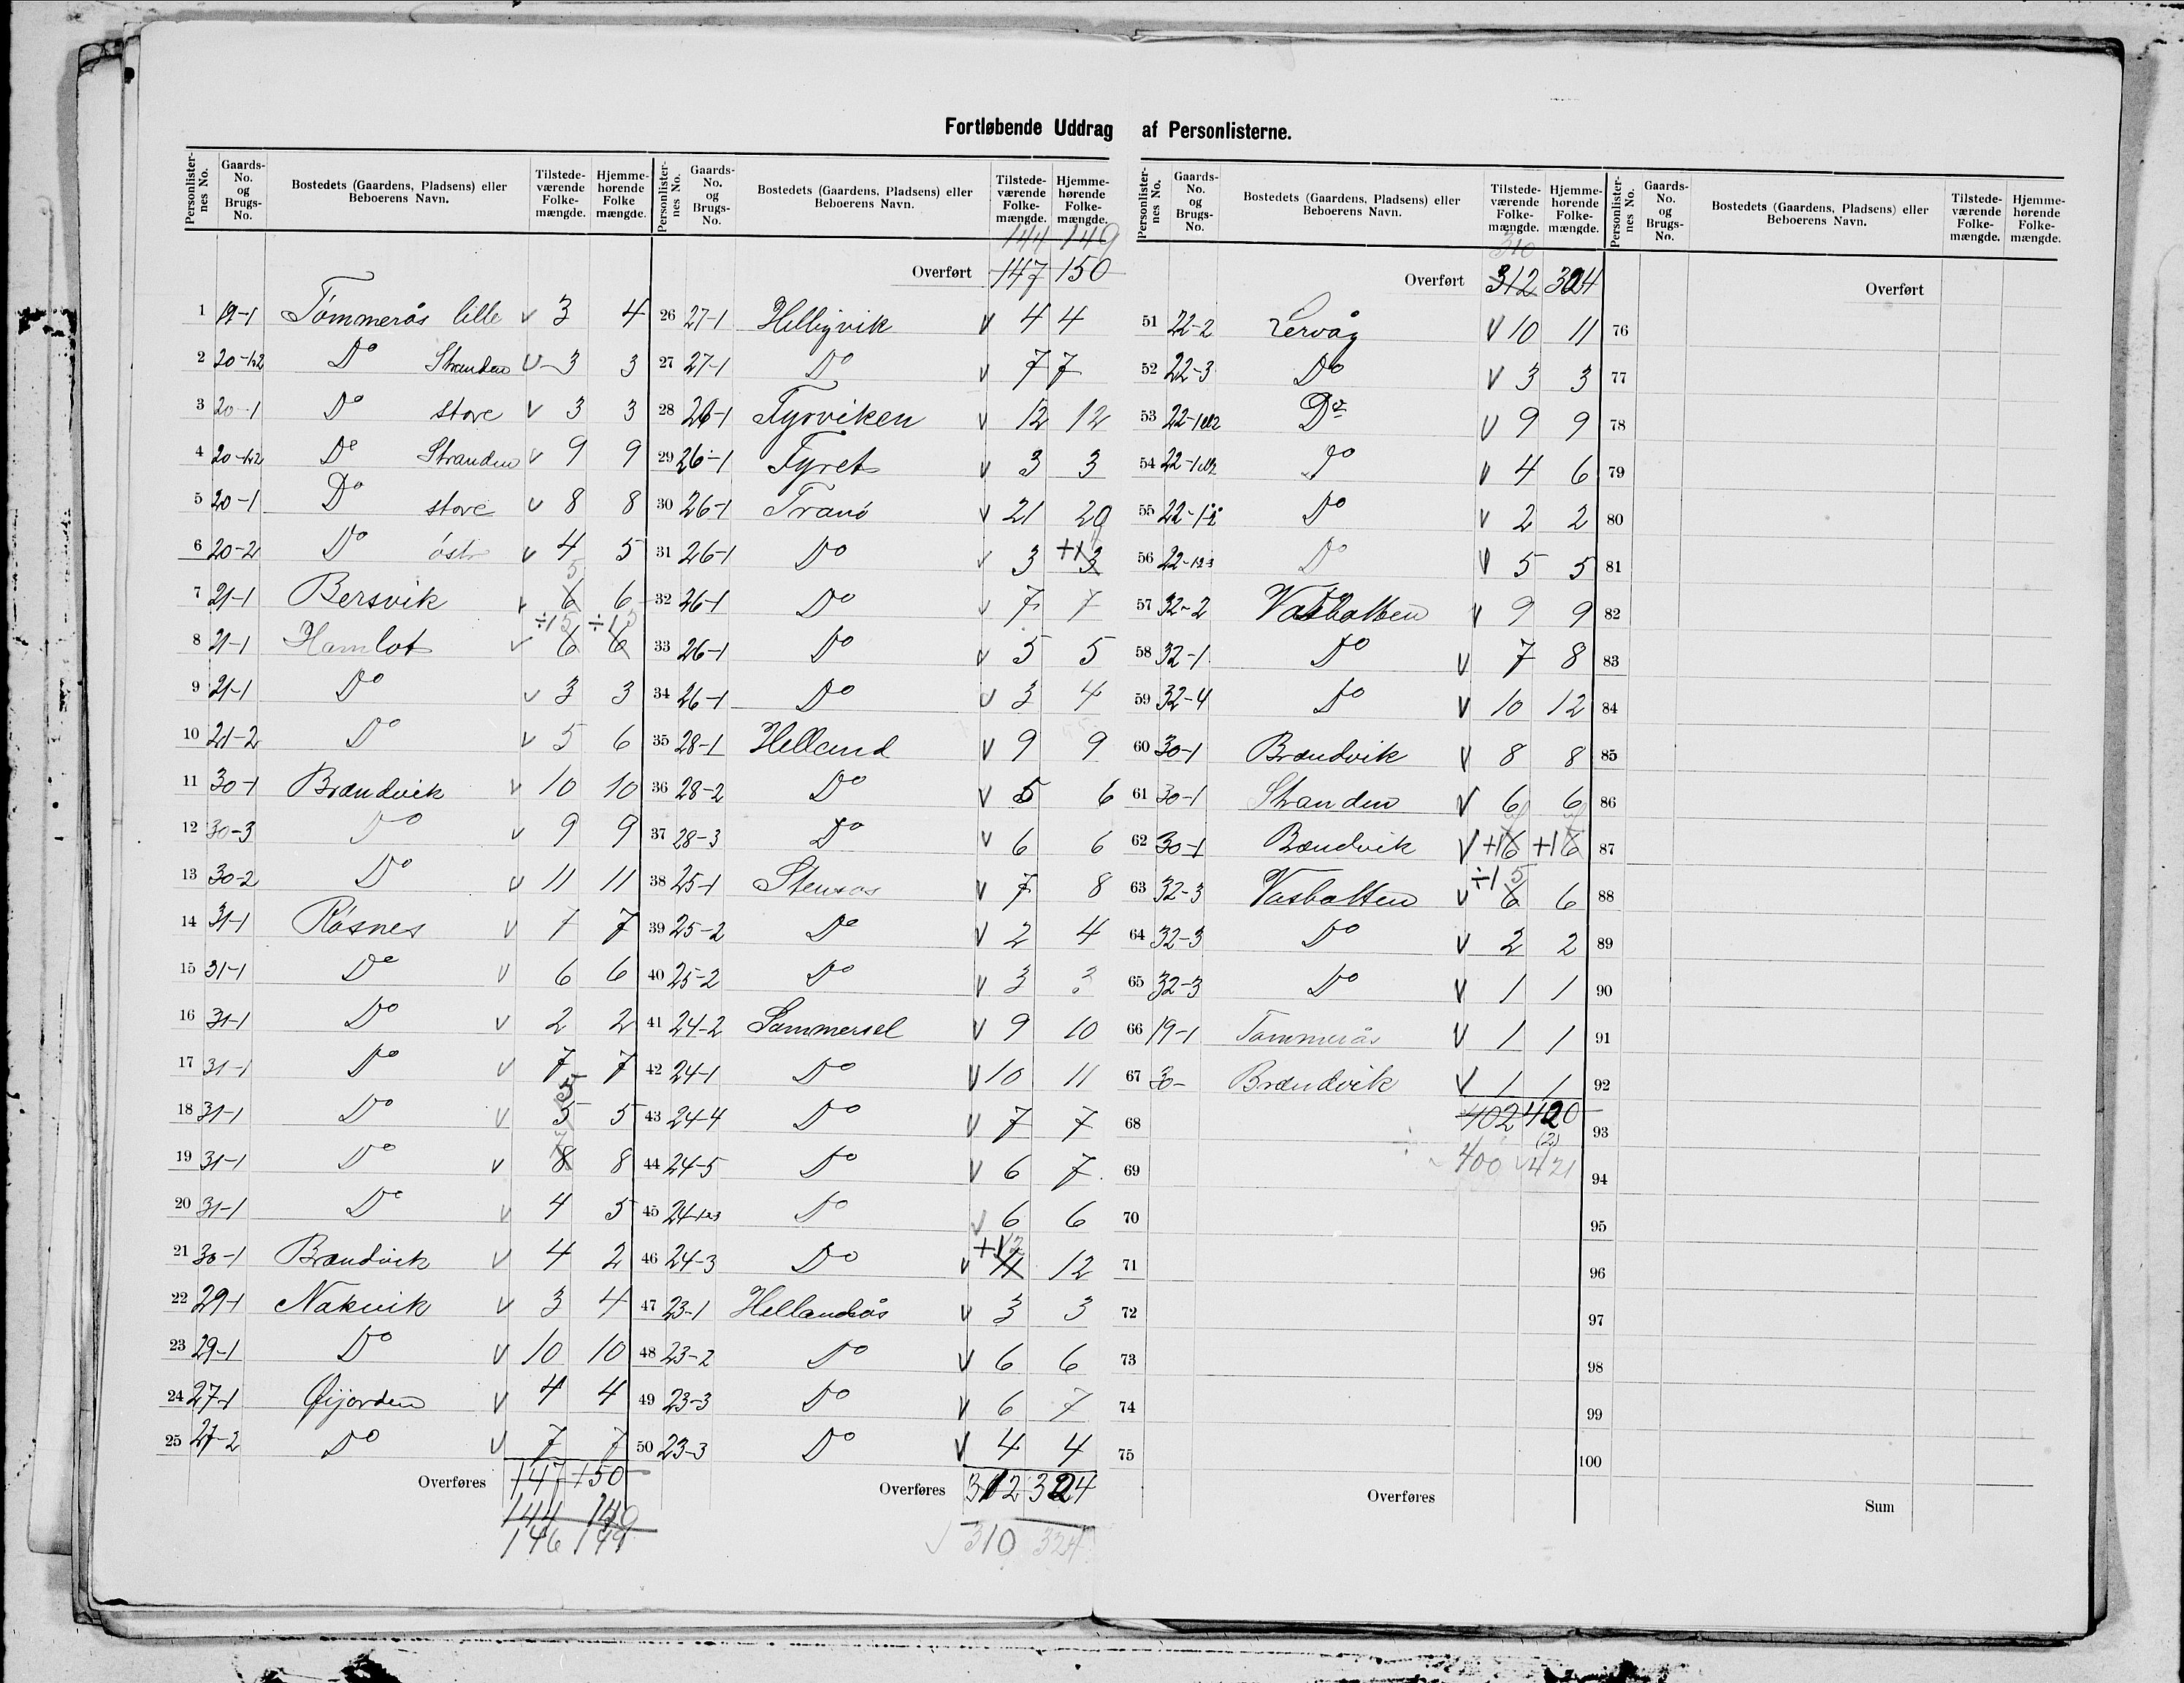 Fortløbende Uddrag af Personlisterne.
Personlister-nes No. Gaards-No. og Brugs-No. Bostedets (Gaardens, Pladsens) eller Beboerens Navn. Tilstede-værende Folke-mængde. Hjemme-hørende Folke mængde.
1 19-1 Tømmerås lille v 3 4
2 20-1&2 Do Stranden v 3 3
3 20-1 Do store v 3 3
4 20-1&2 Do Stranden v 9 9
5 20-1 Do store v 8 8
6 20-2 Do østr v 4 5
7 21-1 Bersvik v 6 5 6
8 21-1 Hamlot v ÷1 5 6 ÷1 5 6
9 21-1 Do v 3 3
10 21-2 Do v 5 6
11 30-1 Brændvik v 10 10
12 30-3 Do v 9 9
13 30-2 Do v 11 11
14 31-1 Røsnes v 7 7
15 31-1 Do v 6 6
16 31-1 Do v 2 2
17 31-1 Do v 7 7
18 31-1 Do v 5 5 5
19 31-1 Do v 7 8 8
20 31-1 Do v 4 5
21 30-1 Brændvik v 4 2
22 29-1 Nakvik v 3 4
23 29-1 Do v 10 10
24 27-1 Øijorden v 4 4
25 27-2 Do v 7 7
Overføres 147 150
144 149
146 149
Personlister-nes No. Gaards-No. og Brugs-No. Bostedets (Gaardens, Pladsens) eller Beboerens Navn. Tilstede-værende Folke-mængde. Hjemme-hørende Folke-mængde.
144 149
Overført 147 150
26 27-1 Helligvik v 4 4
27 27-1 Do v 7 7
28 26-1 Fyrviken v 12 12
29 26-1 Fyret v 3 3
30 26-1 Tranø v 21 20
31 26-1 Do v 3 +1 3
32 26-1 Do v 7 7
33 26-1 Do v 5 5
34 26-1 Do v 3 4
35 28-1 Helland v 9 9
36 28-2 Do v 5 6
37 28-3 Do v 6 6
38 25-1 Stensås v 7 8
39 25-2 Do v 2 4
40 25-2 Do v 3 3
41 24-2 Sammersel v 9 10
42 24-1 Do v 10 11
43 24-4 Do v 7 7
44 24-5 Do v 6 7
45 24-1&3 Do v 6 6
46 24-3 Do v +1 12 11 12
47 23-1 Hellandsås v 3 3
48 23-2 Do v 6 6
49 23-3 Do v 6 7
50 23-3 Do v 4 4
Overføres 312 324
v 310 324
Personlister-nes No. Gaards-No. og Brugs-No. Bostedets (Gaardens, Pladsens) eller Beboerens Navn. Tilstede-værende Folke-mængde. Hjemme-hørende Folke-mængde.
310
Overført 312 324
51 22-2 Lervåg v 10 11
52 22-3 Do v 3 3
53 22-1&2 Do v 9 9
54 22-1&2 Do v 4 6
55 22-1 Do v 2 2
56 22-123 Do v 5 5
57 32-2 Vasbotten v 9 9
58 32-1 Do v 7 8
59 32-4 Do v 10 12
60 30-1 Brændvik v 8 8
61 30-1 Stranden v 6 6
62 30-1 Brændvik v +1 6 +1 6
63 32-3 Vasbotten v ÷1 5 6 6
64 32-3 Do v 2 2
65 32-3 Do v 1 1
66 19-1 Tømmerås v 1 1
67 30- Brændvik v 1 1
68 402 420
(2)
69 ÷ v 400 v 421
70
71
72
73
74
75
Overføres
Personlister-nes No. Gaards-No. og Brugs-No. Bostedets (Gaardens, Pladsens) eller Beboerens Navn. Tilstede-værende Folke-mængde. Hjemme-hørende Folke-mængde.
Overført
76
77
78
79
80
81
82
83
84
85
86
87
88
89
90
91
92
93
94
95
96
97
98
99
100
Sum